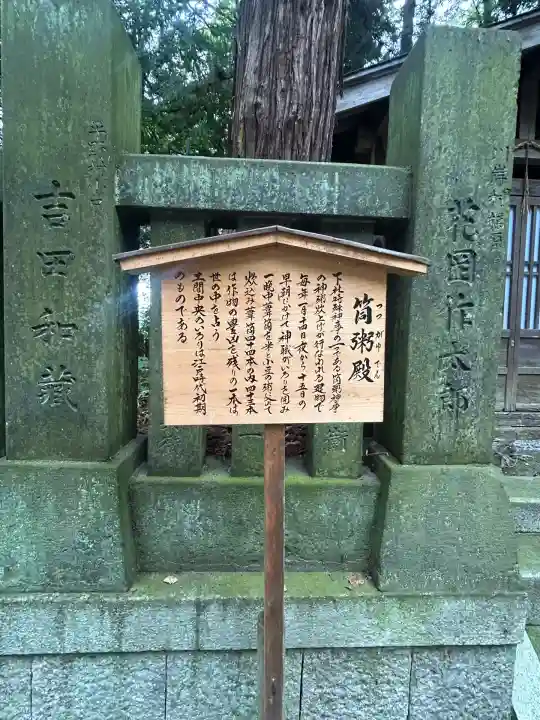 筒粥殿
つつがゆでん
下社特殊神事の一つである筒粥神事
の神粥炊上げが行なわれる建物で
毎年一月十四日夜から十五日の
早朝にかけて神職がいろりを囲み
一晩中葦筒を米と小豆の粥に入て
炊込み葦筒四十四本の内四十三本
は作物の豊凶を残りの一本は、
世の中を占う
土間中央のいろりは江戸時代初期
のものである
花岡作太郎
吉田和蔵